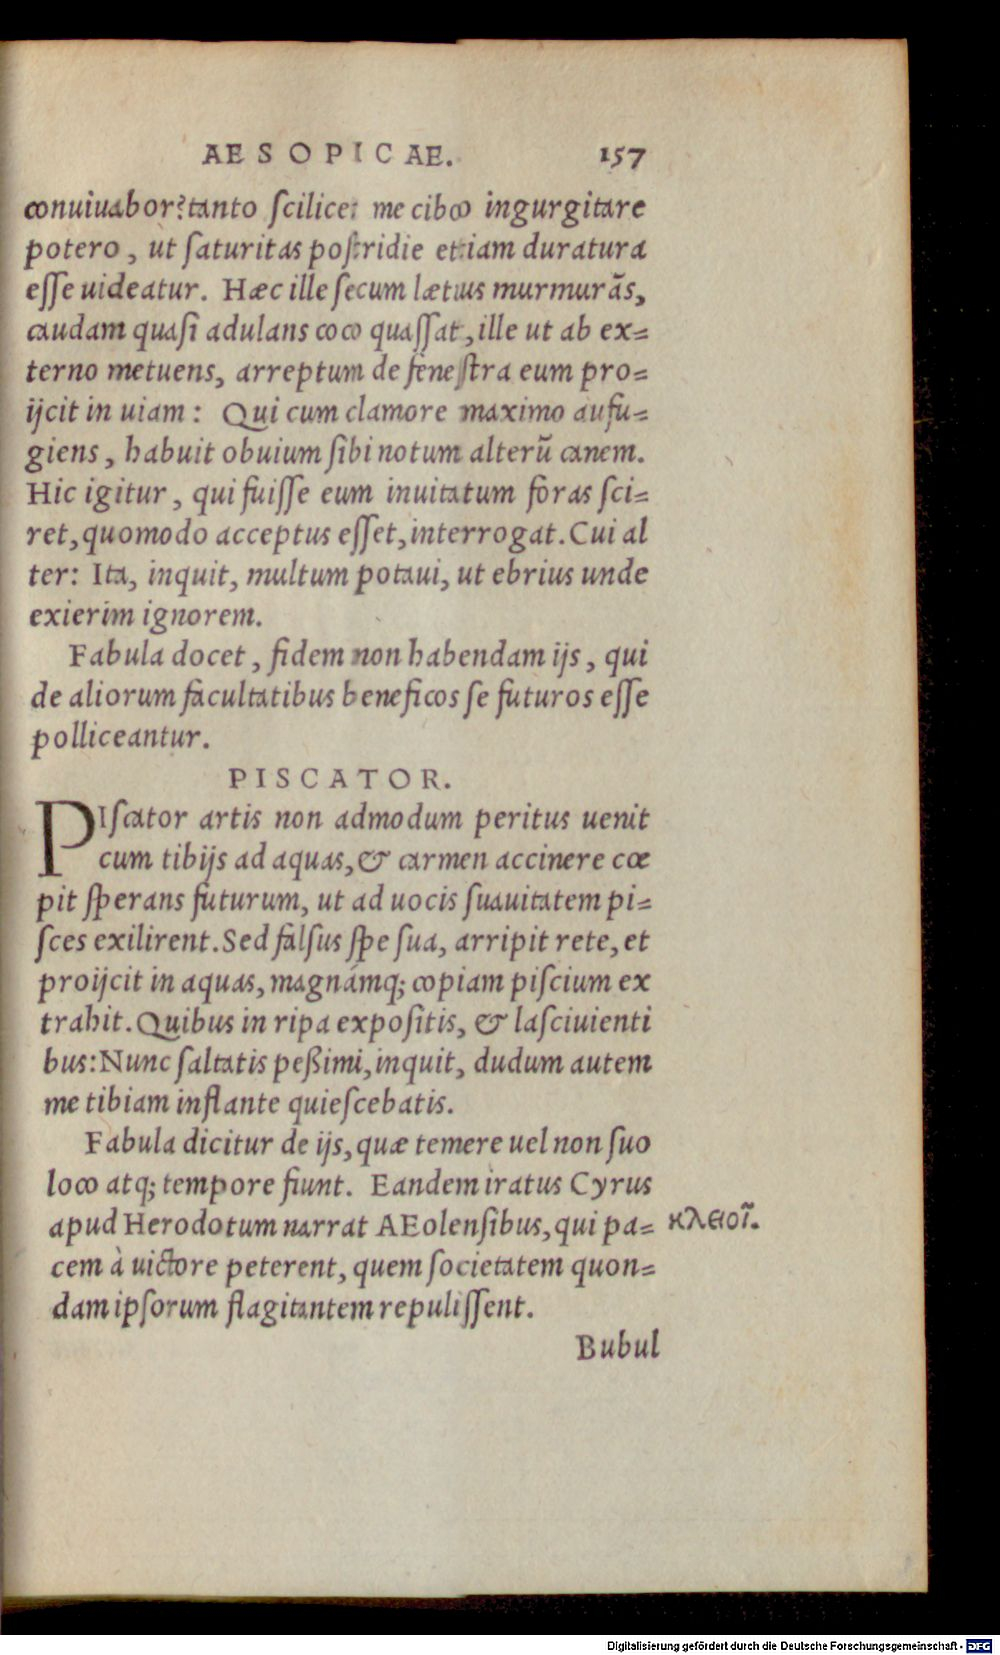 AESOPICAE. 157
conuiuabor? tanto ſcilicet me cibo ingurgitare
potero, ut ſaturitas poſtridie etiam duratura
eſſe uideatur. Hæc ille ſecum lætius murmurãs,
caudam quaſi adulans coco quaſſat, ille ut ab ex=
terno metuens, arreptum de feneſtra eum pro=
ijcit in uiam: Qui cum clamore maximo aufu=
giens, habuit obuium ſibi notum alterũ canem.
Hic igitur, qui fuiſſe eum inuitatum foras ſci=
ret, quomodo acceptus eſſet, interrogat. Cui al
ter: Ita, inquit, multum potaui, ut ebrius unde
exierim ignorem.
Fabula docet, fidem non habendam ijs, qui
de aliorum facultatibus beneficos ſe futuros eſſe
polliceantur.
PISCATOR.
PIſcator artis non admodum peritus uenit
cum tibijs ad aquas, & carmen accinere cœ
pit ſperans futurum, ut ad uocis ſuauitatem pi=
ſces exilirent. Sed falſus ſpe ſua, arripit rete, et
proijcit in aquas, magnámq; copiam piſcium ex
trahit. Quibus in ripa expoſitis, & laſciuienti
bus: Nunc ſaltatis peßimi, inquit, dudum autem
me tibiam inflante quieſcebatis.
Fabula dicitur de ijs, quæ temere uel non ſuo
loco atq; tempore fiunt. Eandem iratus Cyrus
apud Herodotum narrat AEolenſibus, qui pa= κλειοῖ.
cem à uictore peterent, quem ſocietatem quon=
dam ipſorum flagitantem repuliſſent.
Bubul
Digitalisierung gefördert durch die Deutsche Forschungsgemeinschaft - DFG